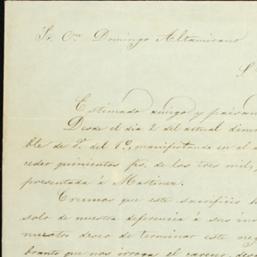 Sr. Dn. Domingo Altamirano
S
Estimado amigo y paisan
Desde el dia 2 del actual
ble de 2. del 1º, manifestando en el
ceder quinientos ps. de los tres mil,
presentada á Martinez.
Creemos que este sacrificio
solo de nuestra deferencia á sus
nuestro deseo de terminar este neg
brante que nos irroga el